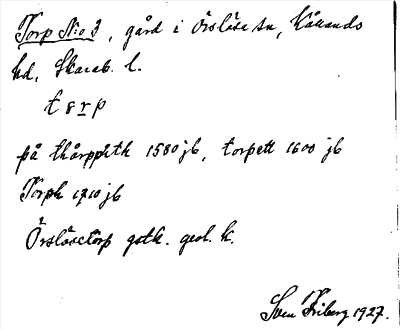 Torp No 3, gård i Örslösa sn, Kållands
hd, Skarab. l.
t o r p
på thårppitk 1580 jb, torpett 1600 jb
Torpk 1710 jb
Örslösatorp gstk. geol. k.
Sven Friberg 1927.